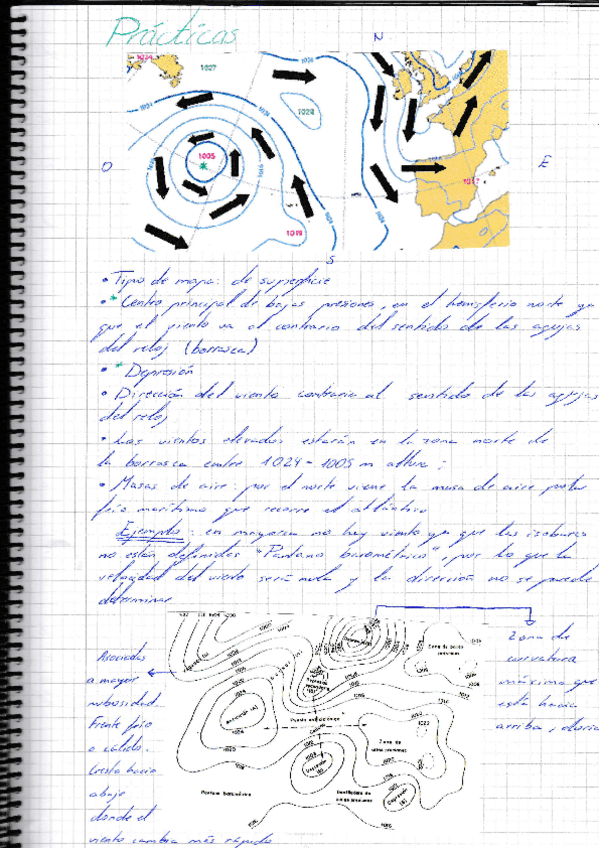 Prácticas
N
1034
1027
1024
1028
1005
O
E
1017
1019
S
• Tipo de mapa: de superficie
• * Centro principal de bajas presiones, en el hemisferio norte ya
que el viento va al contrario del sentido de las agujas
del reloj (borrasca)
• * Depresión
• Dirección del viento contraria al sentido de las agujas
del reloj
• Los vientos elevados estarán en la zona norte de
la borrasca entre 1024 - 1005 m altura;
• Masas de aire: por el norte viene la masa de aire polar
frío marítimo que recorre el atlántico
Ejemplo: en mayorca no hay viento ya que las isobaras
no están definidas "Pantano barométrico", por lo que la
velocidad del viento será nula y la dirección no se puede
determinar
Asociadas
a mayor
nubosidad.
Frente frío
o cálido.
Cresta hacia
abajo
donde el
viento cambia más rápido
Zona de
curvatura
máxima que
está hacia
arriba,
Zona de bajas
presiones
Anticiclón (A)
Puente anticiclónico
Zona de
altas presiones
Depresión
(B)
Depresión
(B)
Pantano barométrico
Desfiladero de
bajas presiones